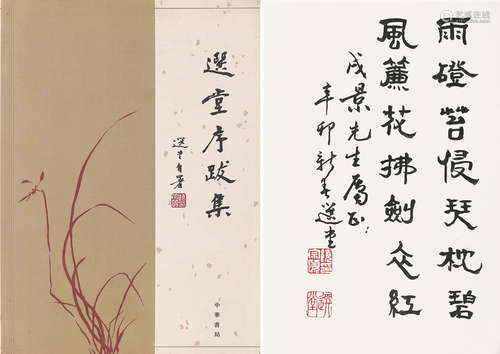 選堂序跋集
選堂自署
中華書局
雨磴苔侵琴枕碧
風簾花拂劍衣紅
成景先生屬正
辛卯新春選堂